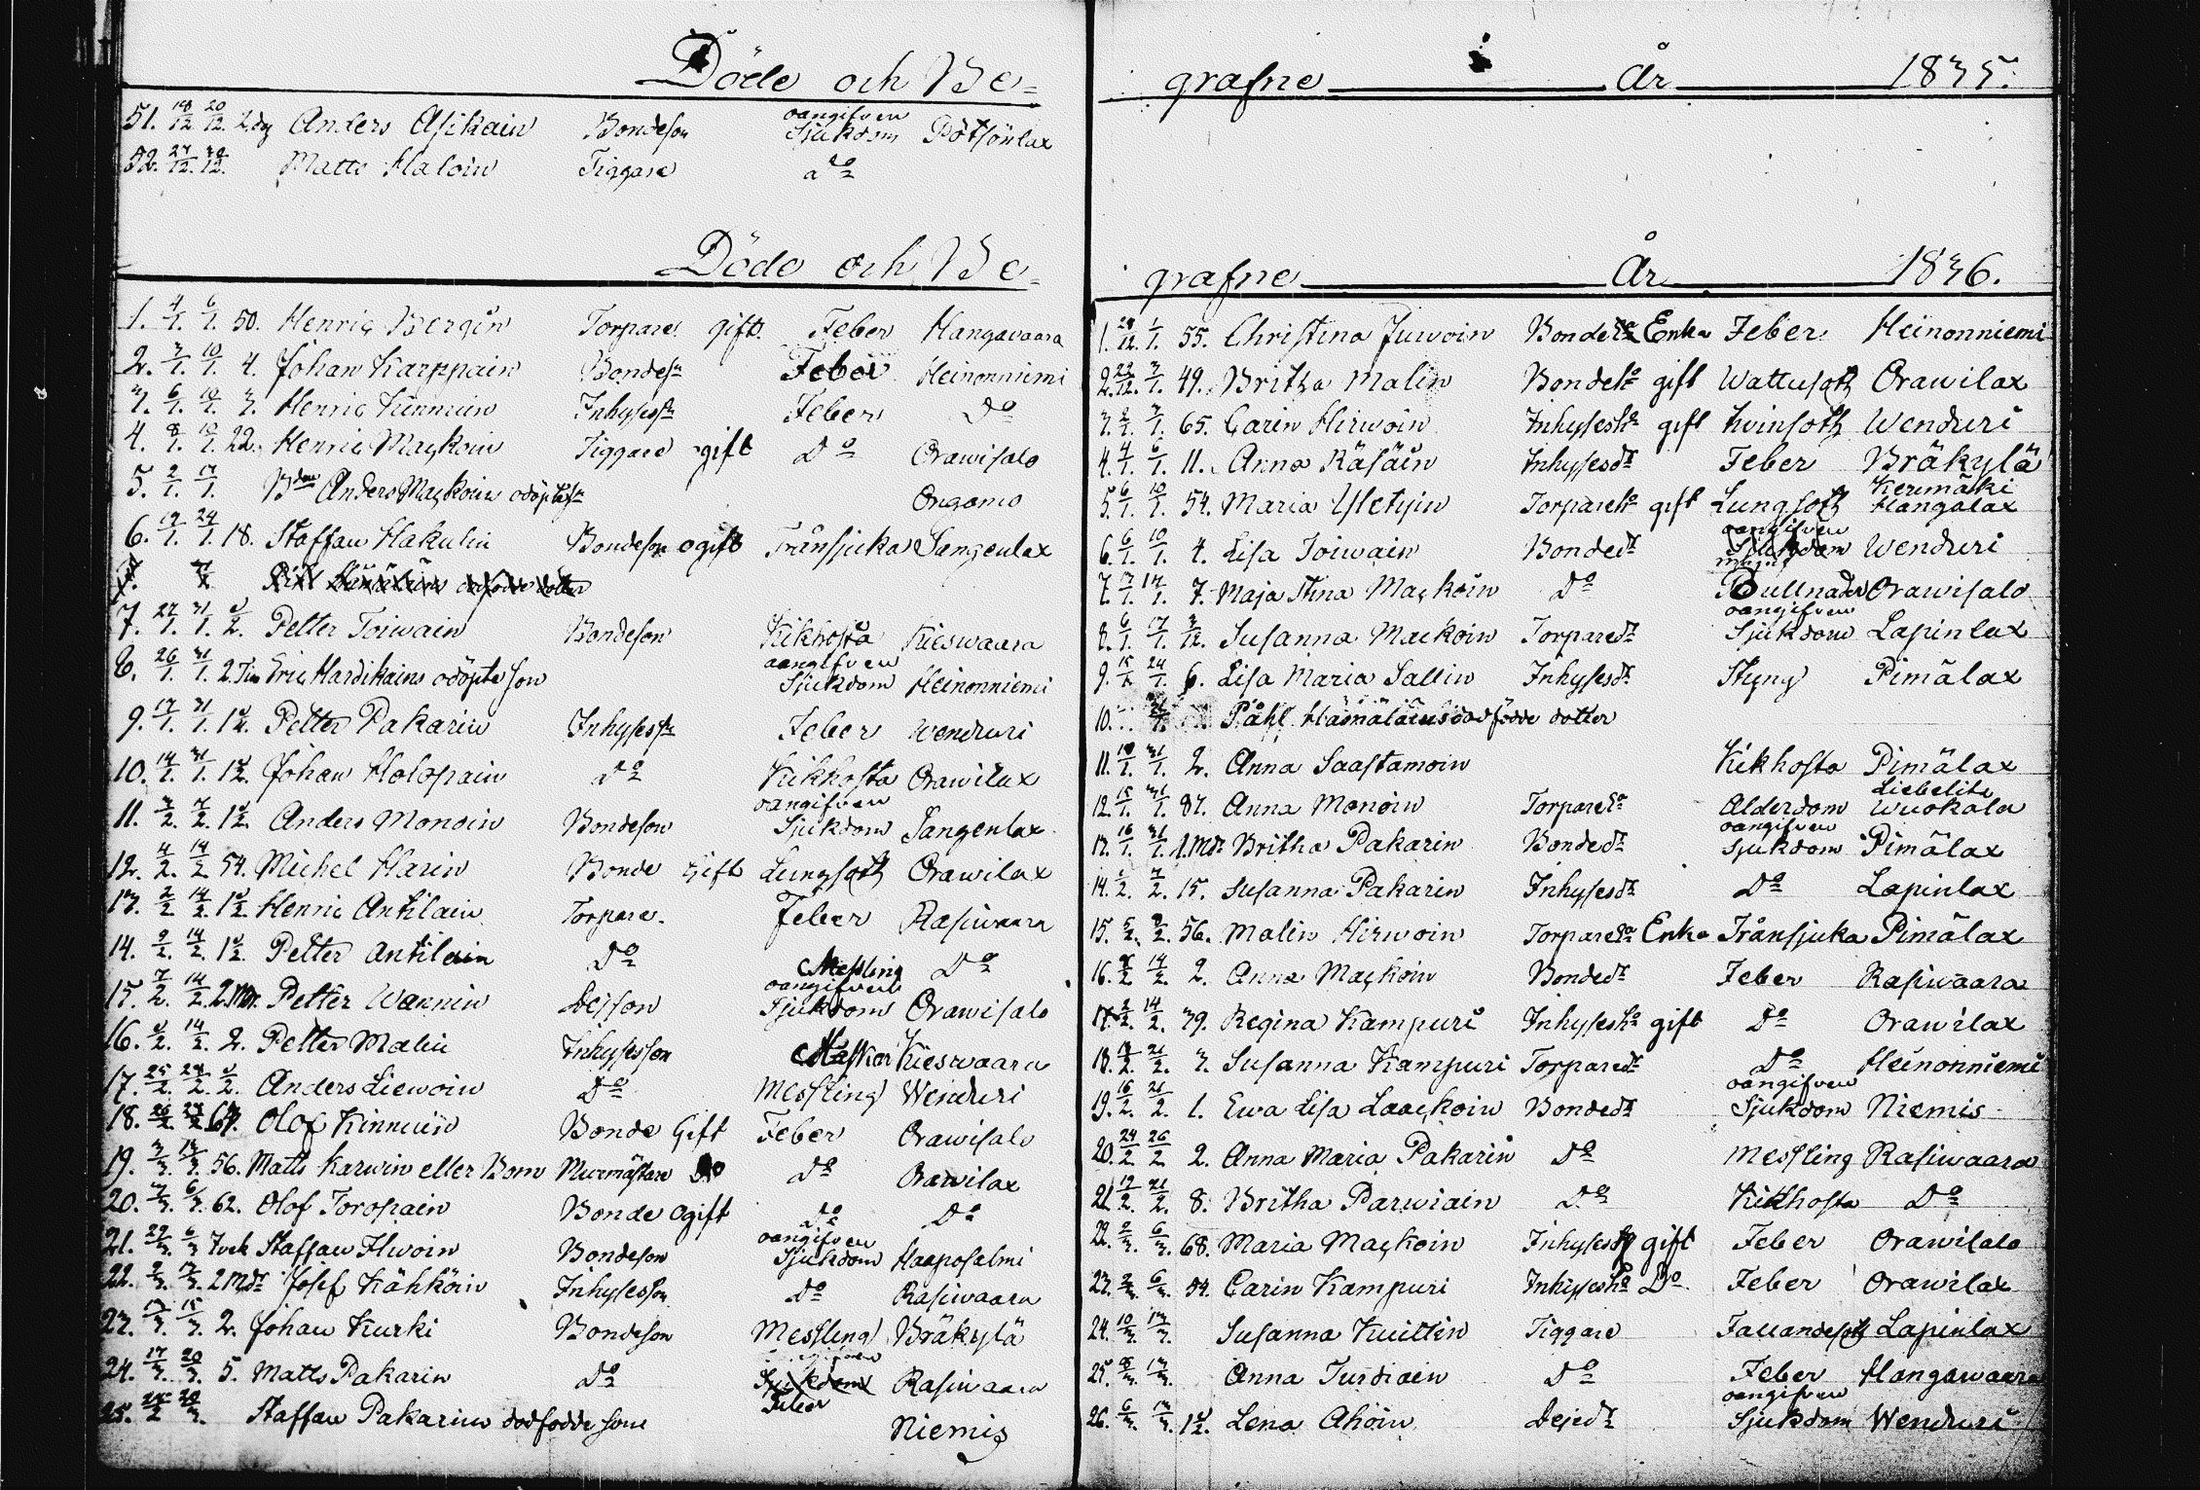 Döde och Be=
51. 18/12 20/12 2 dg Anders Asikain Bondeson oangifven Sjukdom Pötsönlax
52. 27/12 Matts Haloin Tiggare do
Döde och Be=
1. 4/1. 6/1. 50. Henric Bergin Torpare gift. Feber Hangavaara
2. 3/1. 10/1. 4. Johan Karppain Bondesn Feber Heinonniemi
3. 6/1. 10/1. 3. Henric Kinnuin Inhysessn Feber Do
4. 8/1. 10/1. 22. Henric Mackoin Tiggare ogift Do Orawisalo
5. 2/1. 17/1. Bden Anders Mackoins odöpte sn Ongomo
6. 19/1. 24/1. 18. Staffan Hakulin Bondeson ogift Trånsjuka Sangenlax
7. 27/1. 31/1. Petter Toiwain Bondeson Kikhosta Kieswaara
8. 26/1. 31/1. 2. Tim Eric Hardikains odöpte son oangifven Sjukdom Heinonniemi
9. 17/1. 31/1. Petter Pakarin Inhysessn Feber Wenduri
10. 14/1. 31/1. Johan Holopain do Kikhosta Orawilax
11. 3/2. 7/2. Anders Monoin Bondeson oangifven Sjukdom Sangenlax
12. 4/2. 14/2 54. Michel Harin Bonde Gift Lungsoth Orawilax
13. 2/2 14/2. Henric Antilain Torpare. Feber Rasiwaara
14. 9/2 14/2. Petter Antilain Do Messling Do
15. 7/2. 14/2. 2. Mn. Petter Wannin Dejson oangifven Sjukdom Orawisalo
16. 14/2. 2. Petter Malin Inhysesson Kieswaara
17. 25/2. 28/2. Anders Liewoin Do Messling Wenduri
18. 26/2. Olof Kinnuin Bonde Gift Feber Orawisalo
19. 3/3. 13/3. 56. Matts Karwin eller Bom Murmästare Do Do Orawilax
20. 3/3. 6/3. 62. Olof Toropain Bonde Ogift Do Do
21. 6/3 Staffan Ilwoin Bondeson oangifven Sjukdom Haaposalmi
22. 2/3. 13/3. 2 Mdr Josef Kähköin Inhysesson Do Rasiwaara
23. 13/3. 15/3. 2. Johan Kurki Bondeson Messling Bräkylä
24. 17/3 20/3. 5. Matts Pakarin Do Feber Rasiwaara
25. 20/3. Staffan Pakarins dödfödde son Niemis
grafne År 1835.
grafne År 1836.
1. 28/12. 1/1. 55. Christina Juwoin Enka Feber Heinonniemi
2. 22/12. 3/1. 49. Britha Malin Bondeho gift Wattusoth Orawilax
3. 2/1. 3/1. 65. Carin Hirwoin Inhysesho gift Kvinsoth Wenduri
4. 4/1. 6/1. 11. Anna Räsäin Inhysesdr Feber Bräkylä
5. 6/1. 10/1. 54. Maria Yletyin Torpareho gift Lungsoth Kerimäki Hangalax
6. 6/1. 10/1. 4. Lisa Toiwain Bondedr oangifven Sjukdom Wenduri
7. 7/1. 14/1. 7. Maja Stina Mackoin Do Bullnader Orawisalo
8. 6/1. 17/1. 3/12. Susanna Mackoin Torparedr oangifven Sjukdom Lapinlax
9. 15/1. 24/1. 6. Lisa Maria Sallin Inhysesdr Styng Pimälax
10. Påhl Hämäläins dödfödde dotter
11. 18/1. 31/1. 2. Anna Saastamoin Kikhosta Pimälax
12. 15/1. 31/1. Anna Monoin Alderdom Liebelits Wuokala
13. 16/1. 31/1. 1. Mdr Britha Pakarin Bondedr oangifven Sjukdom Pimälax
14. 1/2. 7/2. 15. Susanna Pakarin Inhysesdr Do Lapinlax
15. 5/2. 56. Malin Hirwoin Enka Trånsjuka Pimälax
16. 14/2. 2. Anna Mackoin Bondedr Feber Rasiwaara
17. 2/2. 14/2. 39. Regina Kampuri Inhysesho gift Do Orawilax
18. 21/2. 3. Susanna Kampuri Torparedr Do Heinonniemi
19. 16/2. 21/2. 1. Ewa Lisa Laackoin Bondedr oangifven Sjukdom Niemis
20. 24/2 26/2 2. Anna Maria Pakarin Do Messling Rasiwaara
21. 19/2. 21/2. 8. Britha Parwiain Do Kikhosta Do
22. 2/3. 6/3. 68. Maria Mackoin gift Feber Orawisalo
23. 2/3. 6/3. 54. Carin Kampuri Inhysesho Do Feber Orawilax
24. 10/3. 13/3. Susanna Kuittin Tiggare Fallandesoth Lapinlax
25. 8/3. 13/3. Anna Turdiain Do Feber Hangawaara
26. 6/3. 13/3. Lena Ahoin Dejedr oangifven Sjukdom Wenduri